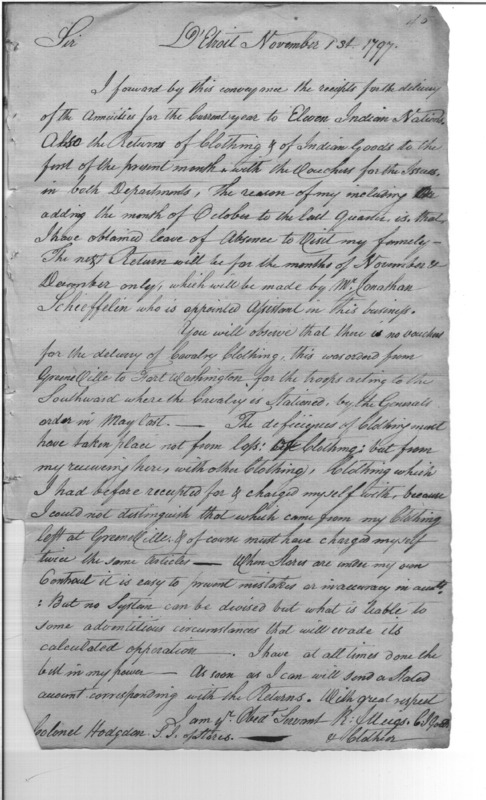 45
Sir D'Etroit November 1st. 1797.
I forward by this conveyance the receipts for the delivery
of the Annuities for the Current year to Eleven Indian Nations
Also the Returns of Clothing & of Indian Goods to the
first of the present month, with the Vouchers for the Issues,
in both Departments, the reason of my including
adding the month of October to the last Quarter, is, that
I have obtained leave of Absence to Visit my family —
The next Return will be for the months of November &
December only, which will be made by Mr. Jonathan
Schieffelin who is appointed Assistant in this business.
You will observe that there is no vouchers
for the delivery of Cavalry Clothing, this was ordered from
Greeneville to Fort Washington for the troops acting to the
Southward where the Cavalry is Stationed, by the Generals
order in May last. — The deficiencies of Clothing must
have taken place not from loss: of Clothing: but from
my receiving here, with other Clothing, Clothing which
I had before receipted for & charged myself with, because
I could not distinguish that which came from my Clothing
left at Greeneville, & of course must have charged myself
twice the same Articles — When Stores are under my own
Controul it is easy to prevent mistakes or inaccuracy in accots.
: But no System can be devised but what is liable to
some adventitious circumstances that will evade its
calculated opperation — . I have at all times done the
best in my power — As soon as I can will send a Stated
account corresponding with the Returns. With great respect
I am yr. Obedt Servant R: Meigs
Colonel Hodgdon S. I. of Stores. — & Clothier